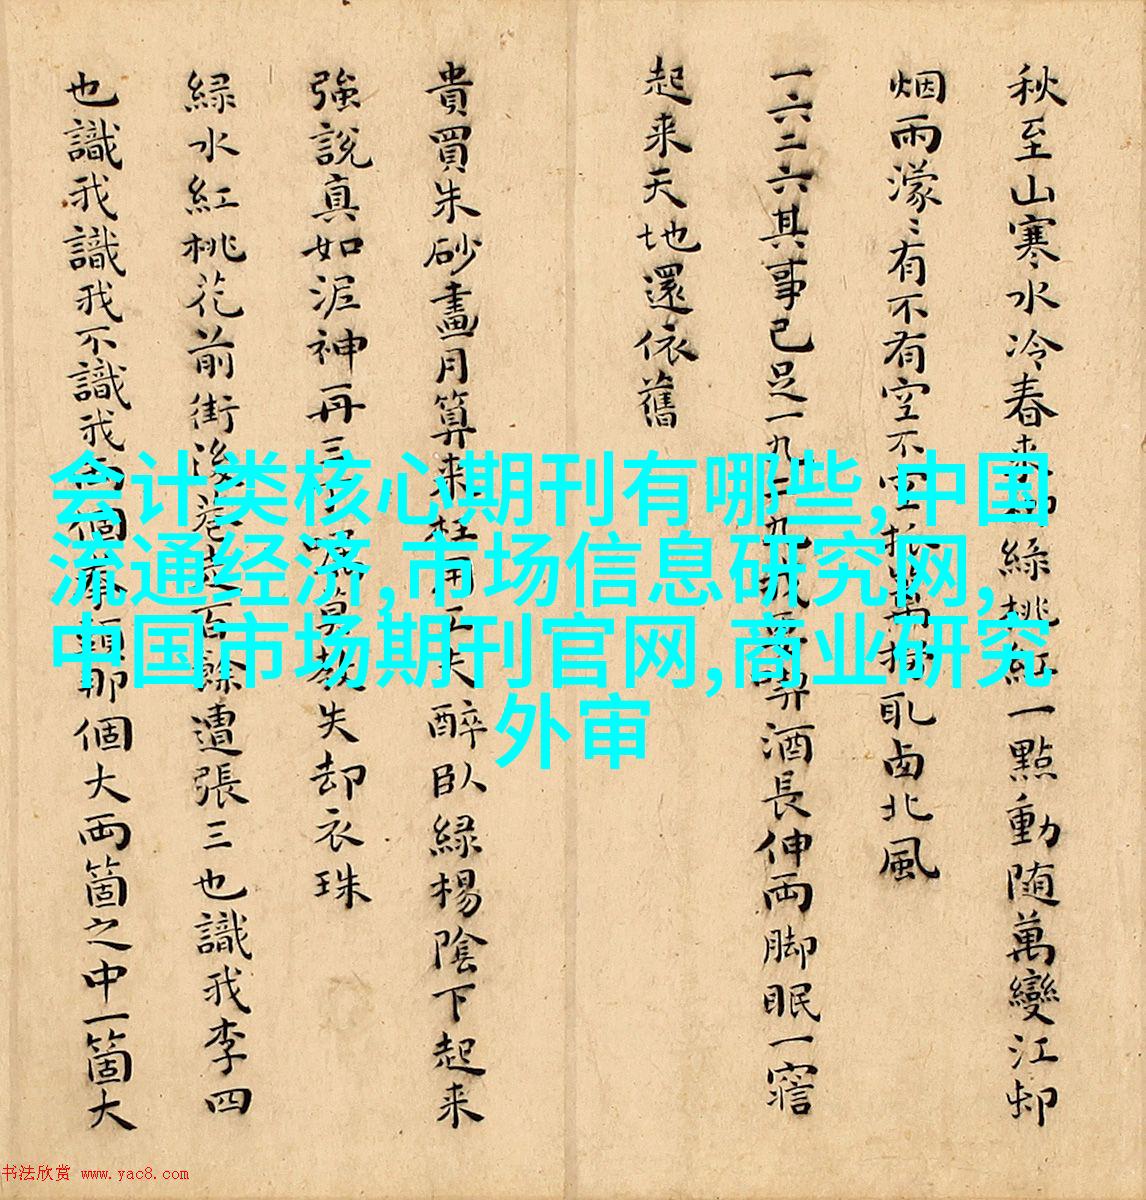 秋至山寒水冷春来綠桃紅一點動随萬變江邨
烟雨濛〻有不有空不空耴卥北風
一六二六其事已足一九二九酒長伸両脚眠一寤
起来天地還依舊
貴買朱砂畫月算来枉用工夫醉臥緑楊陰下起来
強説真如泥神再三莫教失却衣珠
緑水紅桃花前街後巷走百餘遭張三也識我李四
也識我識我不識我両個拳頭那個大両箇之中一箇大
会计类核心期刊有哪些,中国
流通经济,市场信息研究网,
中国市场期刊官网,商业研究
外审
书法欣赏 www.yac8.com